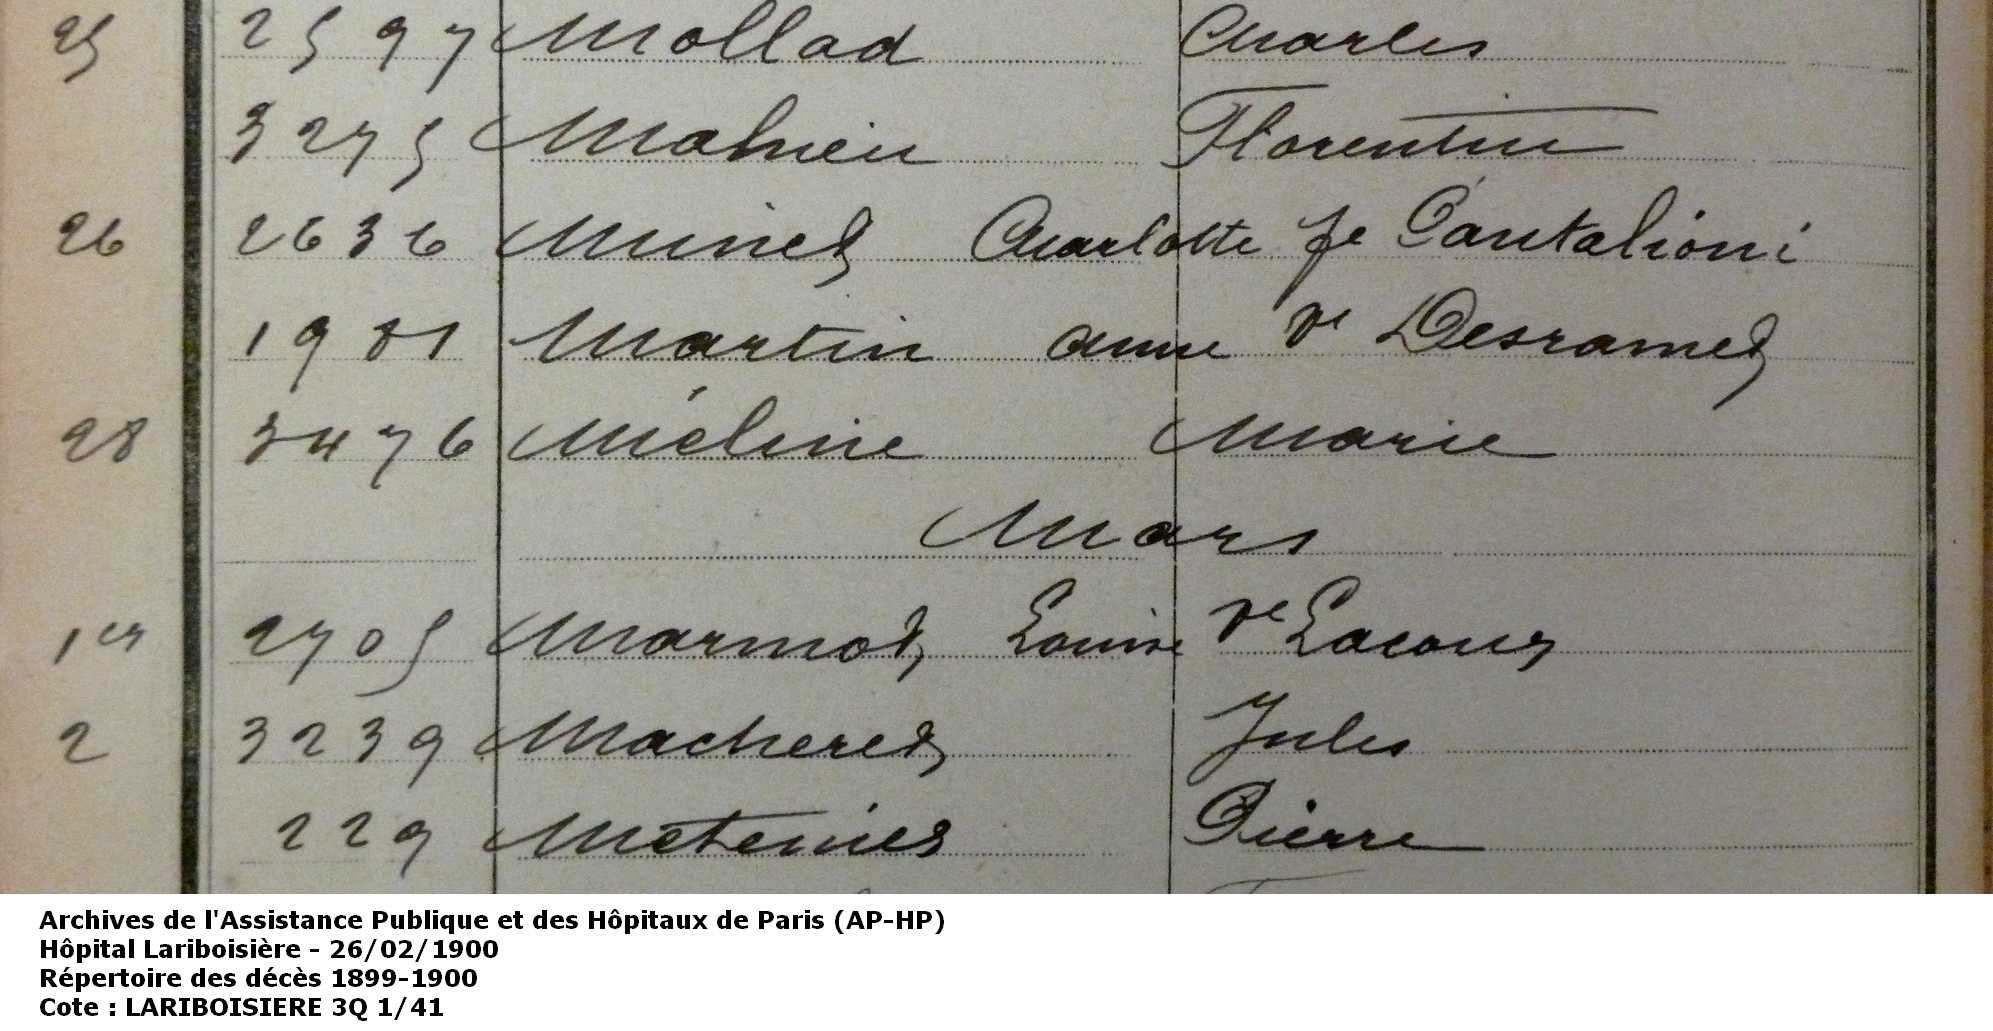 25 2597 Mollad Charles
3275 Mahieu Florentine
26 2636 Minet Charlotte fe Pantalioni
1981 Martin Anne Ve Desramet
28 3476 Méline Marie
Mars
1er 2705 Marmot Louise Ve Lacour
2 3239 Macheret Jules
229 Metenier Pierre
Archives de l'Assistance Publique et des Hôpitaux de Paris (AP-HP)
Hôpital Lariboisière - 26/02/1900
Répertoire des décès 1899-1900
Cote : LARIBOISIERE 3Q 1/41